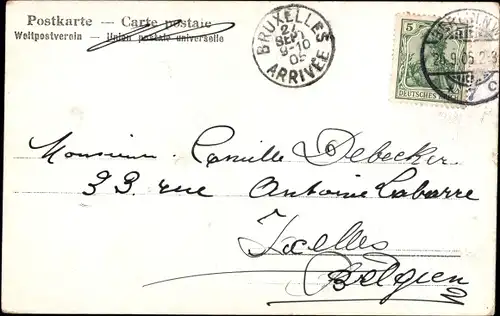 Postkarte – Carte postale
Weltpostverein – Union postale universelle
BRUXELLES
SEPT
9-10
05
ARRIVÉE
5
DEUTSCHES REICH
26.9.05.
C
Monsieur Camille Debecker
33. rue Antoine Labarre
Ixelles
Belgien